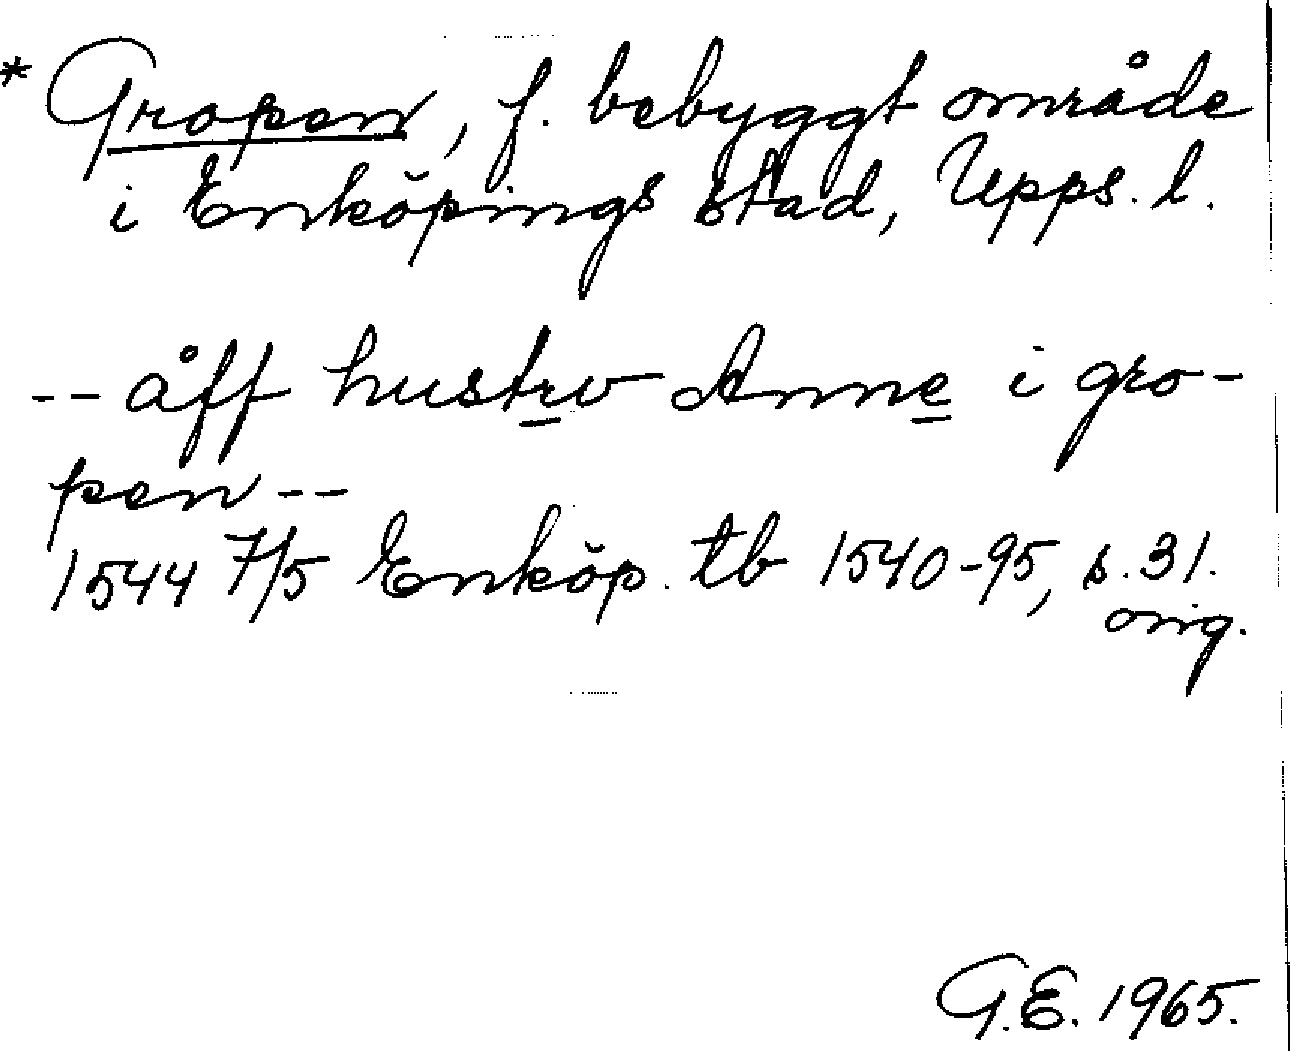 * Gropen, f. bebyggt område
i Enköpings stad, Upps. l.
-- åff hustrv Anne i gro-
pen --
1544 7/5 Enköp. tb 1540-95, s. 31.
orig.
G.E. 1965.